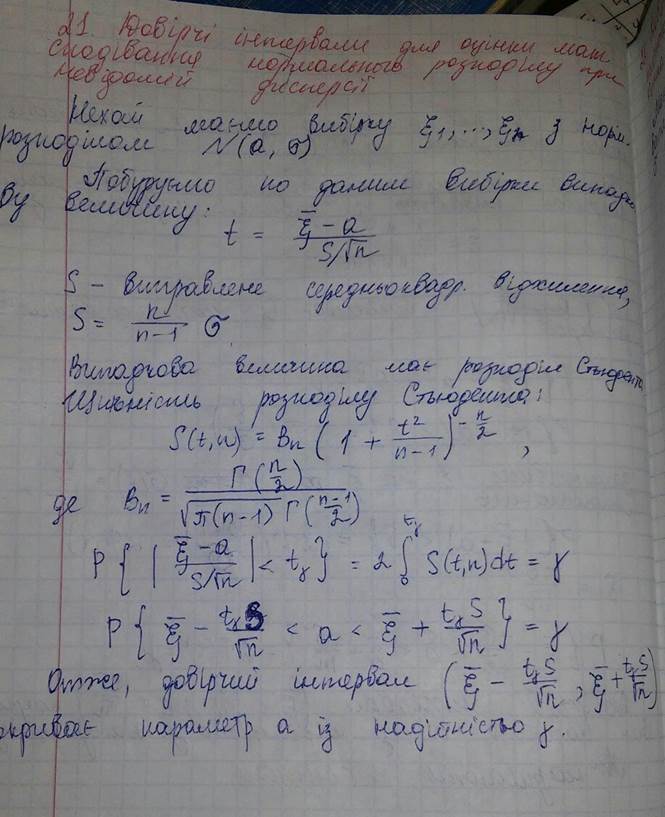 21. Довірчі інтервали для оцінки мат.
сподівання нормального розподілу при
невідомій дисперсії
Нехай маємо вибірку ξ₁,...,ξₙ з норм.
розподілом N(a, σ)
Побудуємо по даним вибірки випадко
ву величину:
t = (ξ̄ - a)/(S/√n)
S - виправлене середньоквадр. відхилення,
S = n/(n-1) σ
Випадкова величина має розподіл Стьюдента
Щільність розподілу Стьюдента:
S(t,n) = Bₙ (1 + t²/(n-1))^(-n/2) ,
де Bₙ = Γ(n/2)/(√π(n-1) Γ((n-1)/2))
P{ |(ξ̄ - a)/(S/√n)| < tᵧ } = 2 ∫₀^tᵧ S(t,n)dt = γ
P{ ξ̄ - tᵧS/√n < a < ξ̄ + tᵧS/√n } = γ
Отже, довірчий інтервал (ξ̄ - tᵧS/√n ; ξ̄ + tᵧS/√n)
окриває параметр a із надійністю γ.